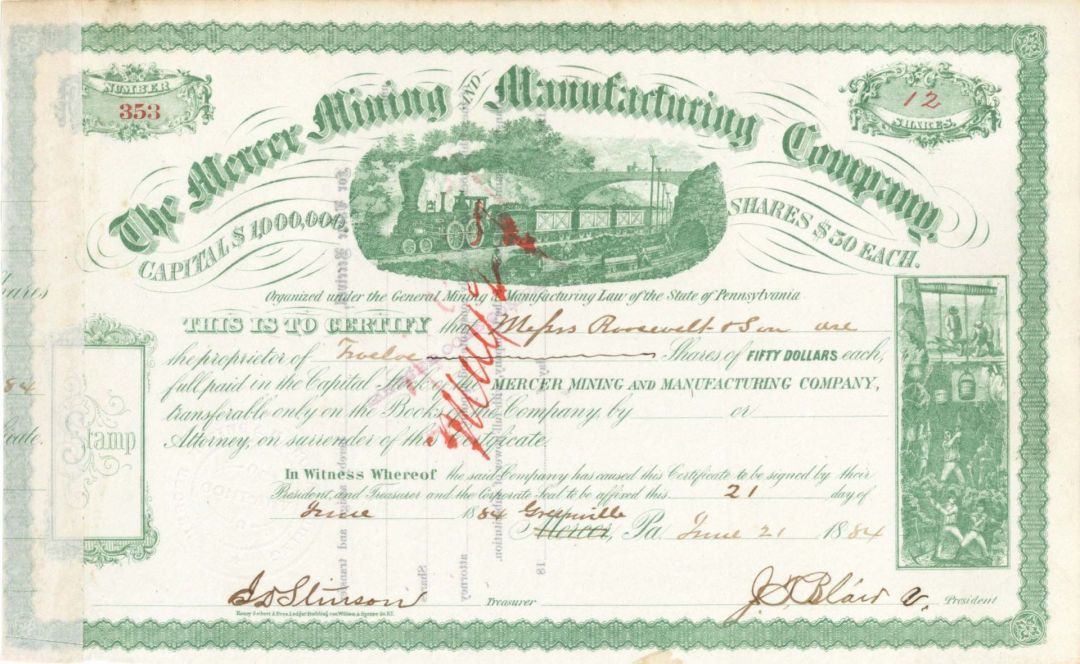 NUMBER
353
12
SHARES.
The Mercer Mining AND Manufacturing Company.
CAPITAL $1,000,000.
SHARES $50 EACH.
Organized under the General Mining & Manufacturing Law of the State of Pennsylvania
THIS IS TO CERTIFY that Messrs Roosevelt & Son are
the proprietor of Twelve Shares of FIFTY DOLLARS each,
full paid in the Capital Stock of the MERCER MINING AND MANUFACTURING COMPANY,
transferable only on the Books of the Company, by or
Attorney, on surrender of this Certificate.
Stamp
In Witness Whereof the said Company has caused this Certificate to be signed by their
President, and Treasurer and the Corporate Seal to be affixed this 21 day of
June 1884 Greenville
Mercer, Pa. June 21 1884
J. P. Blair V. President
Treasurer
hares
84